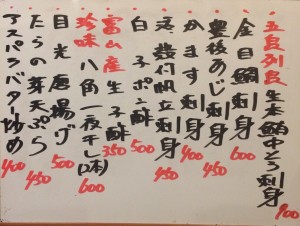 五島列島 生本鮪中とろ刺身 900
金目鯛刺身 600
豊後あじ刺身 450
かます刺身 400
活帆立刺身 450
白子ポン酢 500
富山産 生子酢 350
珍味 八角一夜干し(2本) 600
目光唐揚げ 500
たらの芽天ぷら 450
アスパラバター炒め 400